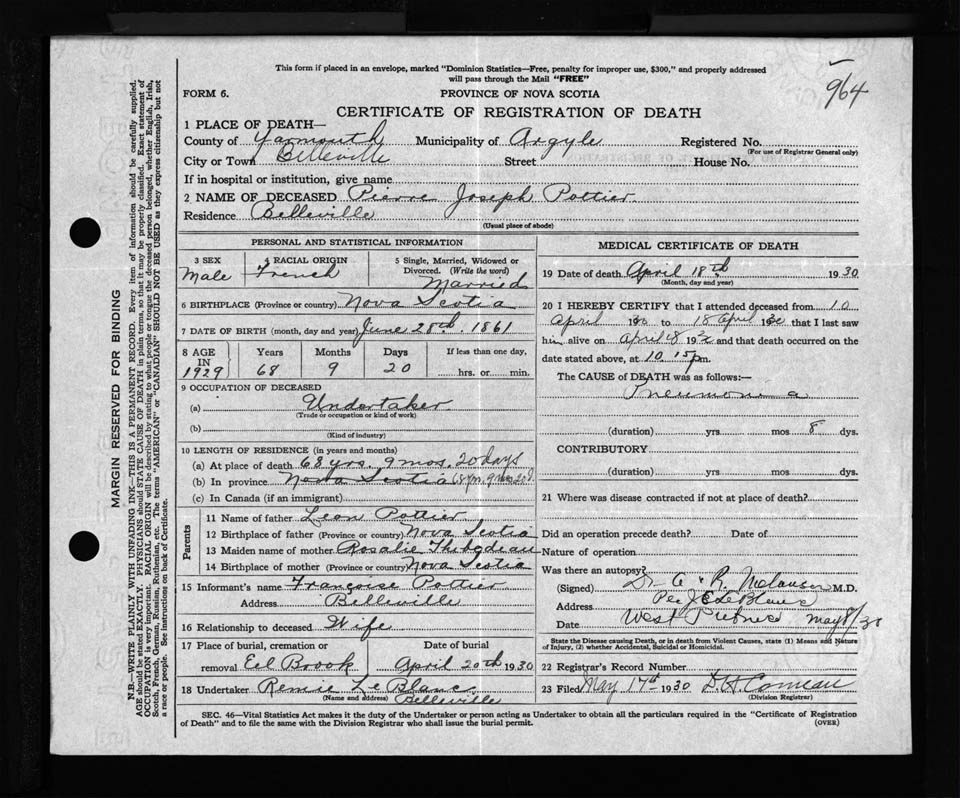 This form if placed in an envelope, marked "Dominion Statistics—Free, penalty for improper use, $300," and properly addressed
will pass through the Mail "FREE"
964
FORM 6.
PROVINCE OF NOVA SCOTIA
CERTIFICATE OF REGISTRATION OF DEATH
1 PLACE OF DEATH—
County of Yarmouth Municipality of Argyle Registered No.
(For use of Registrar General only)
City or Town Belleville Street House No.
If in hospital or institution, give name
2 NAME OF DECEASED Pierre Joseph Pottier
Residence Belleville
(Usual place of abode)
PERSONAL AND STATISTICAL INFORMATION
3 SEX Male
4 RACIAL ORIGIN French
5 Single, Married, Widowed or
Divorced. (Write the word)
Married
6 BIRTHPLACE (Province or country) Nova Scotia
7 DATE OF BIRTH (month, day and year) June 28th, 1861
8 AGE Years Months Days If less than one day,
IN 1929 68 9 20 hrs. or min.
9 OCCUPATION OF DECEASED
(a) Undertaker
(Trade or occupation or kind of work)
(b)
(Kind of industry)
10 LENGTH OF RESIDENCE (in years and months)
(a) At place of death 68 yrs. 9 mos. 20 days
(b) In province Nova Scotia
(c) In Canada (if an immigrant)
Parents
11 Name of father Leon Pottier
12 Birthplace of father (Province or country) Nova Scotia
13 Maiden name of mother Rosalie
14 Birthplace of mother (Province or country) Nova Scotia
15 Informant's name Françoise Pottier
Address Belleville
16 Relationship to deceased Wife
17 Place of burial, cremation or Date of burial
removal Eel Brook April 20th 1930
18 Undertaker Remie LeBlanc
(Name and address) Belleville
MEDICAL CERTIFICATE OF DEATH
19 Date of death April 18th 1930
(Month, day and year)
20 I HEREBY CERTIFY that I attended deceased from 10
April 1930 to 18 April 1930 that I last saw
him alive on April 18 19 and that death occurred on the
date stated above, at 10.15 p.m.
The CAUSE of DEATH was as follows:—
Pneumonia
(duration) yrs. mos 8 dys.
CONTRIBUTORY
(duration) yrs. mos dys.
21 Where was disease contracted if not at place of death?
Did an operation precede death? Date of
Nature of operation
Was there an autopsy?
(Signed) Dr A. R. Melanson M.D.
Address Per J E LeBlanc
Date West Pubnico May 8/30
State the Disease causing Death, or in death from Violent Causes, state (1) Means and Nature
of Injury, (2) whether Accidental, Suicidal or Homicidal.
22 Registrar's Record Number
23 Filed May 17th 1930 D. H. Comeau
(Division Registrar)
SEC. 46—Vital Statistics Act makes it the duty of the Undertaker or person acting as Undertaker to obtain all the particulars required in the "Certificate of Registration
of Death" and to file the same with the Division Registrar who shall issue the burial permit.
(OVER)
MARGIN RESERVED FOR BINDING
N.B.—WRITE PLAINLY WITH UNFADING INK—THIS IS A PERMANENT RECORD. Every item of information should be carefully supplied.
AGE should be stated EXACTLY. PHYSICIANS should STATE CAUSE OF DEATH in plain terms, so that it may be properly classified. Exact statement of
OCCUPATION is very important. RACIAL ORIGIN will be described by stating to what people or tongue the deceased person belonged, whether English, Irish,
Scotch, French, German, Russian, Ruthenian, etc. The terms "AMERICAN" or "CANADIAN" SHOULD NOT BE USED as they express citizenship but not
a race or people. See instructions on back of Certificate.